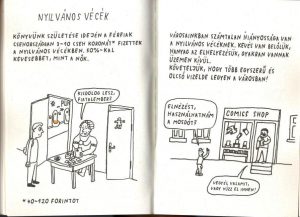 NYILVÁNOS VÉCÉK
KÖNYVÜNK SZÜLETÉSE IDEJÉN A FÉRFIAK
CSEHORSZÁGBAN 5-10 CSEH KORONÁT* FIZETTEK
A NYILVÁNOS VÉCÉKBEN, 50%-KAL
KEVESEBBET, MINT A NŐK.
KISDOLOG LESZ,
FIATALEMBER?
*60-120 FORINTOT
VÁROSAINKBAN SZÁMTALAN HIÁNYOSSÁGA VAN
A NYILVÁNOS VÉCÉKNEK. KEVÉS VAN BELŐLÜK,
HANYAG AZ ELHELYEZÉSÜK, GYAKRAN VANNAK
ÜZEMEN KÍVÜL.
KÖVETELJÜK, HOGY TÖBB EGYSZERŰ ÉS
OLCSÓ VIZELDE LEGYEN A VÁROSBAN!
ELNÉZÉST,
HASZNÁLHATNÁM
A MOSDÓT?
COMICS SHOP
VEGYÉL VALAMIT,
VAGY HÚZZ EL INNEN!